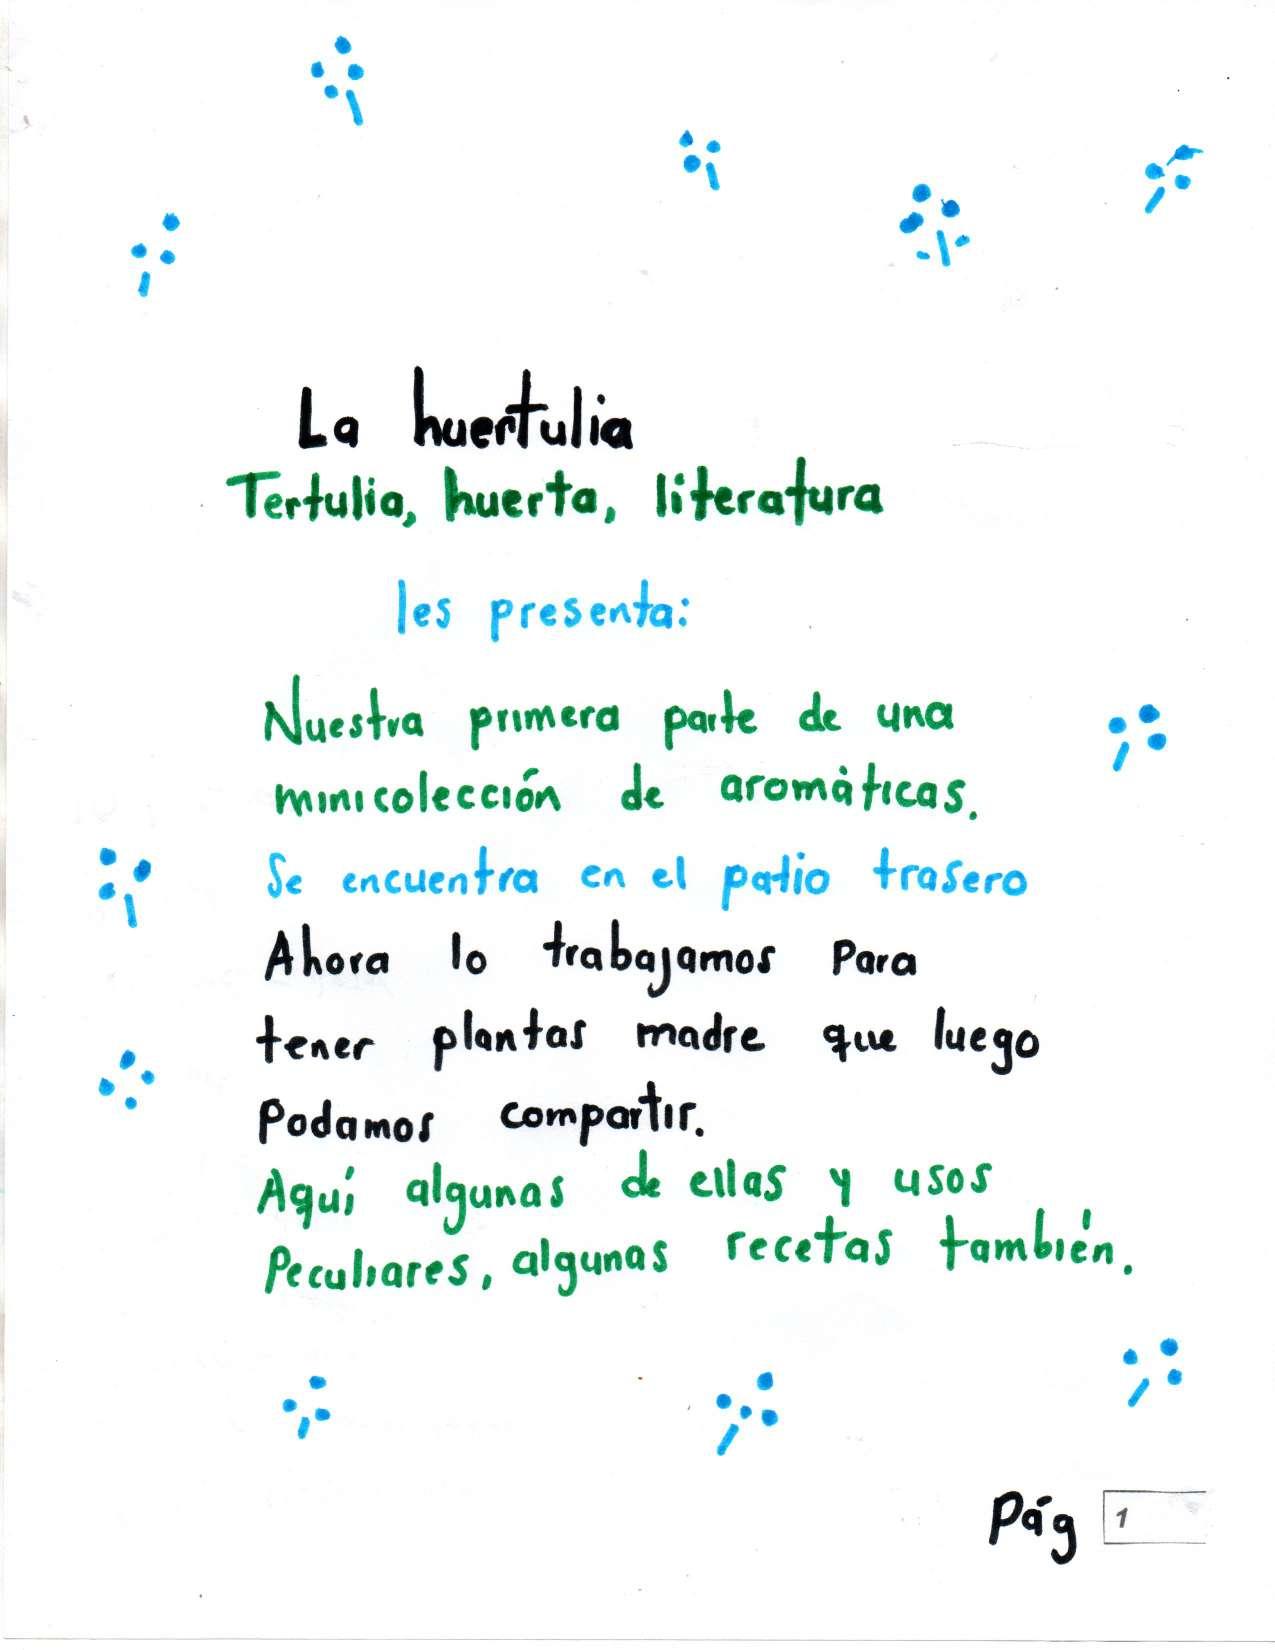 La huertulia
Tertulia, huerta, literatura
les presenta:
Nuestra primera parte de una
minicolección de aromáticas.
Se encuentra en el patio trasero
Ahora lo trabajamos para
tener plantas madre que luego
Podamos compartir.
Aquí algunas de ellas y usos
Peculiares, algunas recetas también.
Pág 1